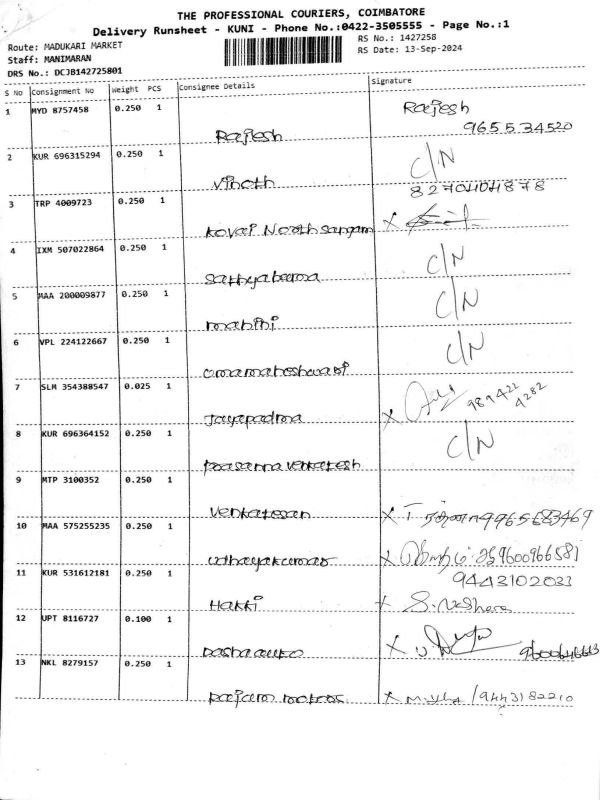 THE PROFESSIONAL COURIERS, COIMBATORE
Delivery Runsheet - KUNI - Phone No.:0422-3505555 - Page No.:1
Route: MADUKARI MARKET
RS No.: 1427258
Staff: MANIMARAN
RS Date: 13-Sep-2024
DRS No.: DCJB142725801
S No Consignment No Weight PCS Consignee Details Signature
1 MYD 8757458 0.250 1 Rajesh Rajesh
965534520
2 KUR 696315294 0.250 1 Vinoth C/N
3 TRP 4009723 0.250 1 Kovai North Sangam X
4 IXM 507022864 0.250 1 Sathyabama C/N
5 MAA 200009877 0.250 1 C/N
6 VPL 224122667 0.250 1 umamaheshwari C/N
7 SLM 354388547 0.025 1 Jayapadma X 989422
4282
8 KUR 696364152 0.250 1 Prasanna Venkatesh C/N
9 MTP 3100352 0.250 1 Venkatesan X
10 MAA 575255235 0.250 1 udhayakumar X 9600966581
9443102033
11 KUR 531612181 0.250 1 Hakki
12 UPT 8116727 0.100 1 X
13 NKL 8279157 0.250 1 Rajam motors X 9443182210